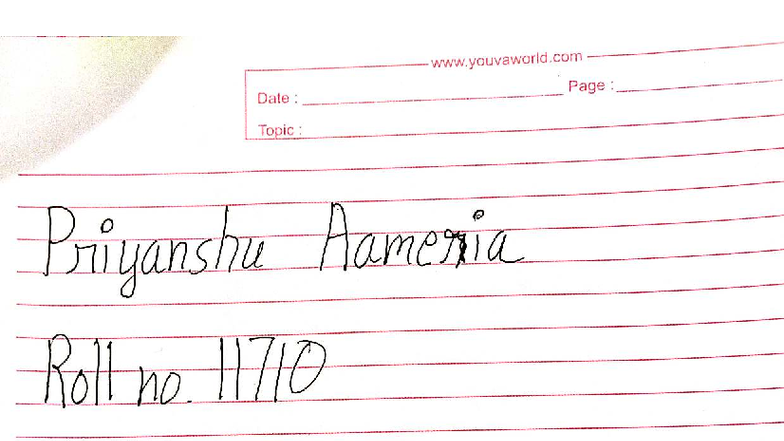 www.youvaworld.com
Date : Page :
Topic :
Priyanshu Aameria
Roll no. 11710